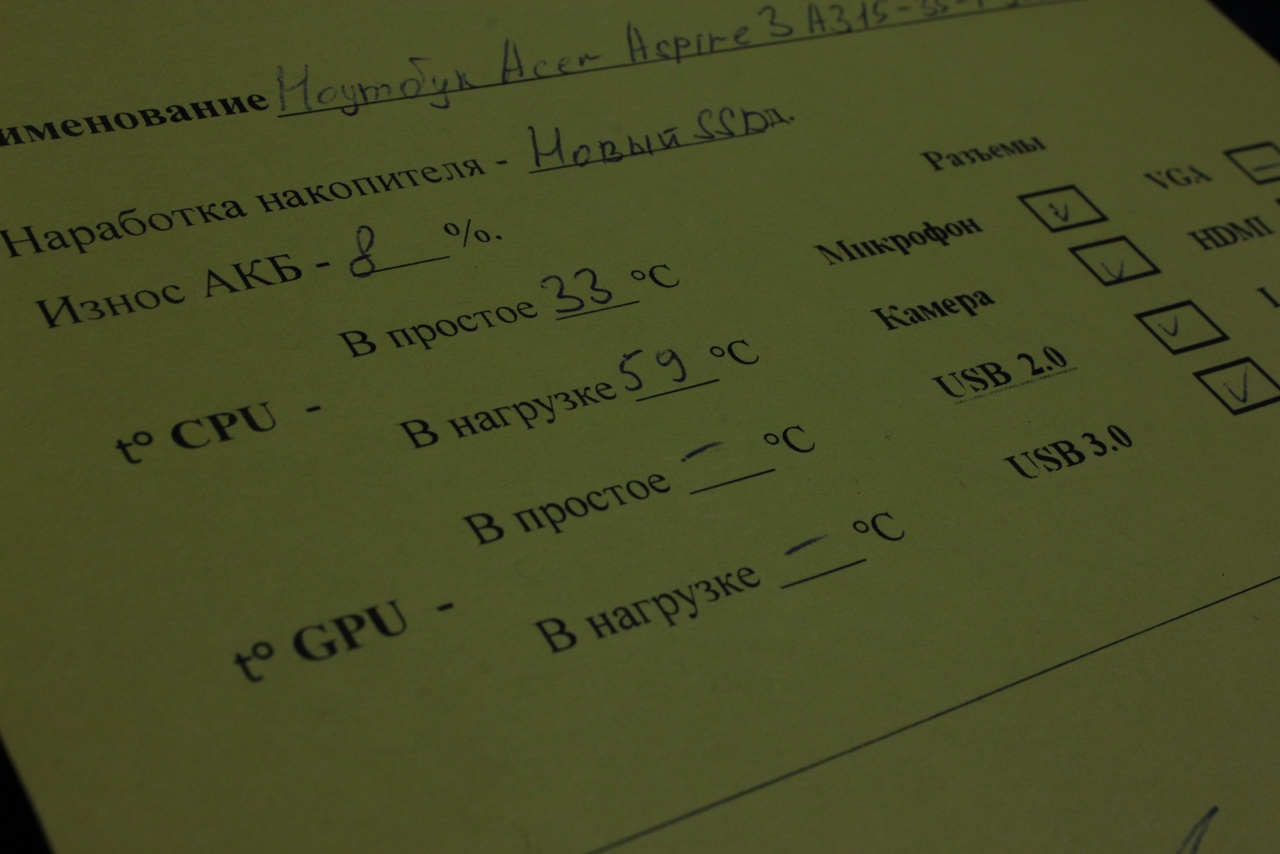 именование Ноутбук Acer Aspire 3 A315-
Наработка накопителя - Новый SSDд.
Износ АКБ - 8 %.
t° CPU -
В простое 33 °C
В нагрузке 59 °C
t° GPU -
В простое — °C
В нагрузке — °C
Разъемы
Микрофон
VGA
Камера
HDMI
USB 2.0
USB 3.0